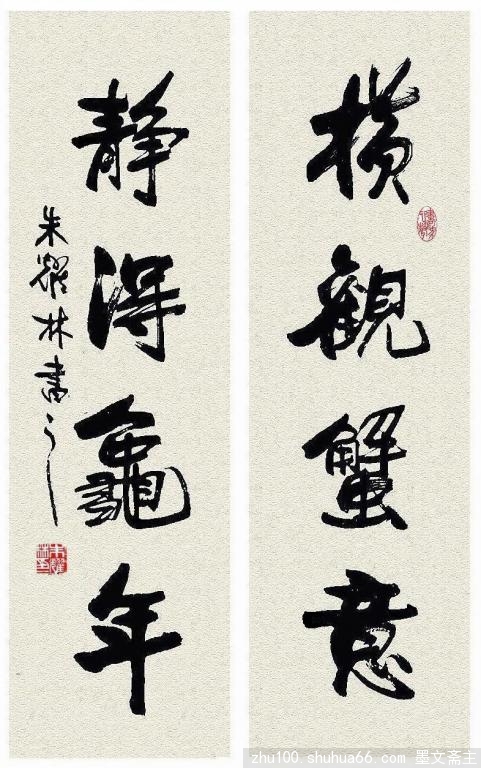 横觀蟹意
静得龜年
朱耀林書
zhu100 shuhua66.com 墨文斋主